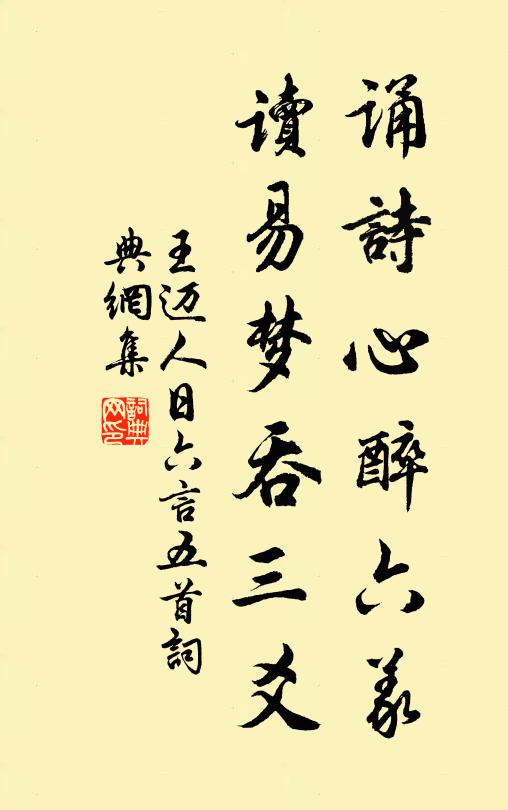 诵詩心醉六义
讀易梦吞三爻
王迈人日六言五首詞
典網集
詞典
网印